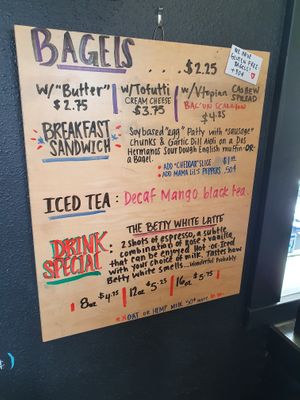 BAGELS ....$2.25
WE HAVE
GLUTEN FREE
BAGELS!
w/"Butter"
$2.75
w/Tofutti
CREAM CHEESE
$3.75
w/Vtopian CASHEW
SPREAD
BACUN SCALLION
$4.25
BREAKFAST
SANDWICH
Soy based "egg" Patty with "sausage"
Chunks & Garlic Dill Aioli on a Dos
Hermanos Sour Dough English muffin -OR-
a Bagel.
* ADD "CHEDDAR" SLICE $1.00
* ADD MAMA LIL'S PEPPERS .50¢
ICED TEA : Decaf Mango black tea.
DRINK
SPECIAL
THE BETTY WHITE LATTE
: 2 shots of espresso, a subtle
combination of rose + vanilla,
that can be enjoyed Hot or Iced
with your choice of milk. Tastes how
Betty White smells... Wonderful Probably.
8oz $4.75 | 12oz $5.25 | 16oz $5.75
OAT OR HEMP MILK 50¢ more